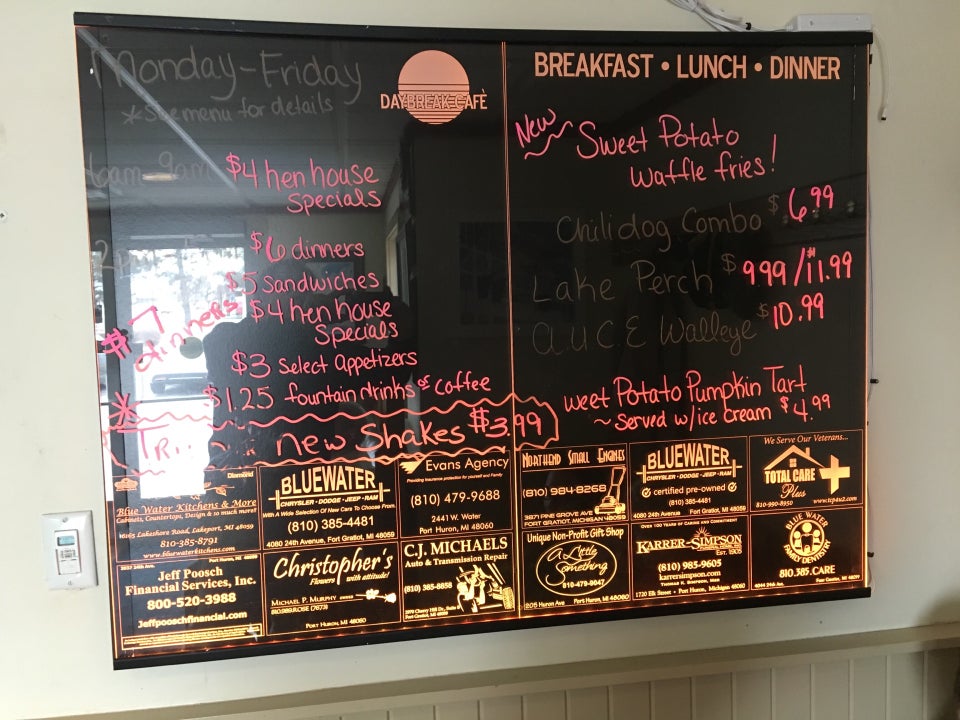 Monday-Friday
*See menu for details
6am-9am $4 hen house
Specials
$6 dinners
$5 Sandwiches
$7 dinners
$4 hen house
Specials
$3 Select Appetizers
* $1.25 fountain drinks or coffee
new Shakes $3.99
DAYBREAK CAFÈ
BREAKFAST • LUNCH • DINNER
New Sweet Potato
Waffle fries!
Chili dog Combo $6.99
Lake Perch $9.99/$11.99
A.U.C.E Walleye $10.99
weet Potato Pumpkin Tart
~Served w/ice cream $4.99
Diamond
Blue Water Kitchens & More
Cabinets, Countertops, Design & so much more!
Lakeshore Road, Lakeport, MI 48059
810-385-8791
www.bluewaterkitchens.com
BLUEWATER
CHRYSLER · DODGE · JEEP · RAM
With A Wide Selection Of New Cars To Choose From.
(810) 385-4481
4080 24th Avenue, Fort Gratiot, MI 48059
Evans Agency
Providing insurance protection for yourself and Family
(810) 479-9688
2441 W. Water
Port Huron, MI 48060
NORTHEND SMALL ENGINES
(810) 984-8268
3871 PINE GROVE AVE
FORT GRATIOT, MICHIGAN 48059
BLUEWATER
CHRYSLER · DODGE · JEEP · RAM
certified pre-owned
(810) 385-4481
4080 24th Avenue, Fort Gratiot, MI 48059
We Serve Our Veterans...
TOTAL CARE
Plus
810-990-8950
www.tcpau2.com
Jeff Poosch
Financial Services, Inc.
800-520-3988
Jeffpooschfinancial.com
Christopher's
Flowers with attitude!
MICHAEL P. MURPHY OWNER
810.989.ROSE (7673)
PORT HURON, MI 48060
C.J. MICHAELS
Auto & Transmission Repair
(810) 385-8858
Fort Gratiot, MI 48059
Unique Non-Profit Gift Shop
A Little Something
810-479-9047
205 Huron Ave Port Huron, MI 48060
OVER 100 YEARS OF CARING AND COMMITMENT
KARRER-SIMPSON
EST. 1905
(810) 985-9605
karrersimpson.com
1720 Elk Street • Port Huron, Michigan 48060
BLUE WATER
FAMILY DENTISTRY
810.385.CARE
Fort Gratiot, MI 48059